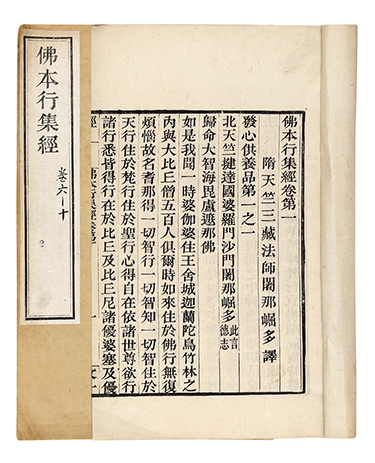 佛本行集經
卷六—十
2
佛本行集經卷第一
隋天竺三藏法師闍那崛多譯
發心供養品第一之一
北天竺揵達國婆羅門沙門闍那崛多 此言德志
歸命大智海毘盧遮那佛
如是我聞一時婆伽婆住王舍城迦蘭陀鳥竹林之
內與大比丘僧五百人俱爾時如來住於佛行無復
煩惱故名耆那得一切智行一切智知一切智住於
天行住於梵行住於聖行心得自在依諸世尊欲行
諸行悉皆得行在於比丘及比丘尼諸優婆塞及優